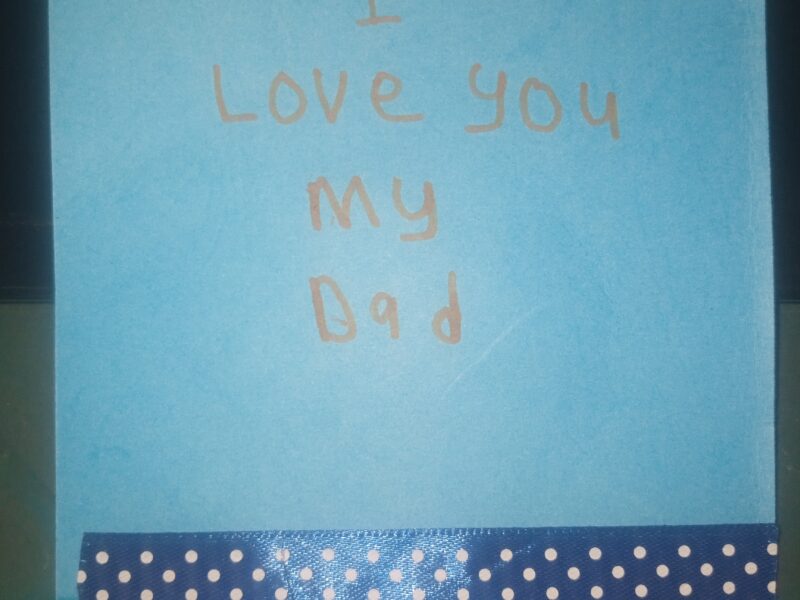 I
Love you
My
Dad